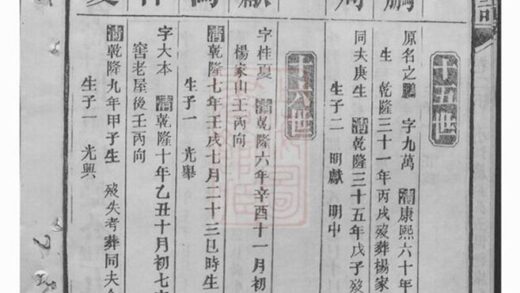 十五世
鵬
原名之鵬 字九萬 清康熙六十年
生 乾隆三十一年丙戌歿葬楊家
同夫庚生 清乾隆三十五年戊子歿
生子二 明獻 明中
十六世
獻
字桂夏 清乾隆六年辛酉十一月初
楊家山壬丙向
清乾隆七年壬戌七月二十三巳時生
生子一 光舉
字大本 清乾隆十年乙丑十月初七
窖老屋後壬丙向
清乾隆九年甲子生 歿失考葬同夫
生子一 光興